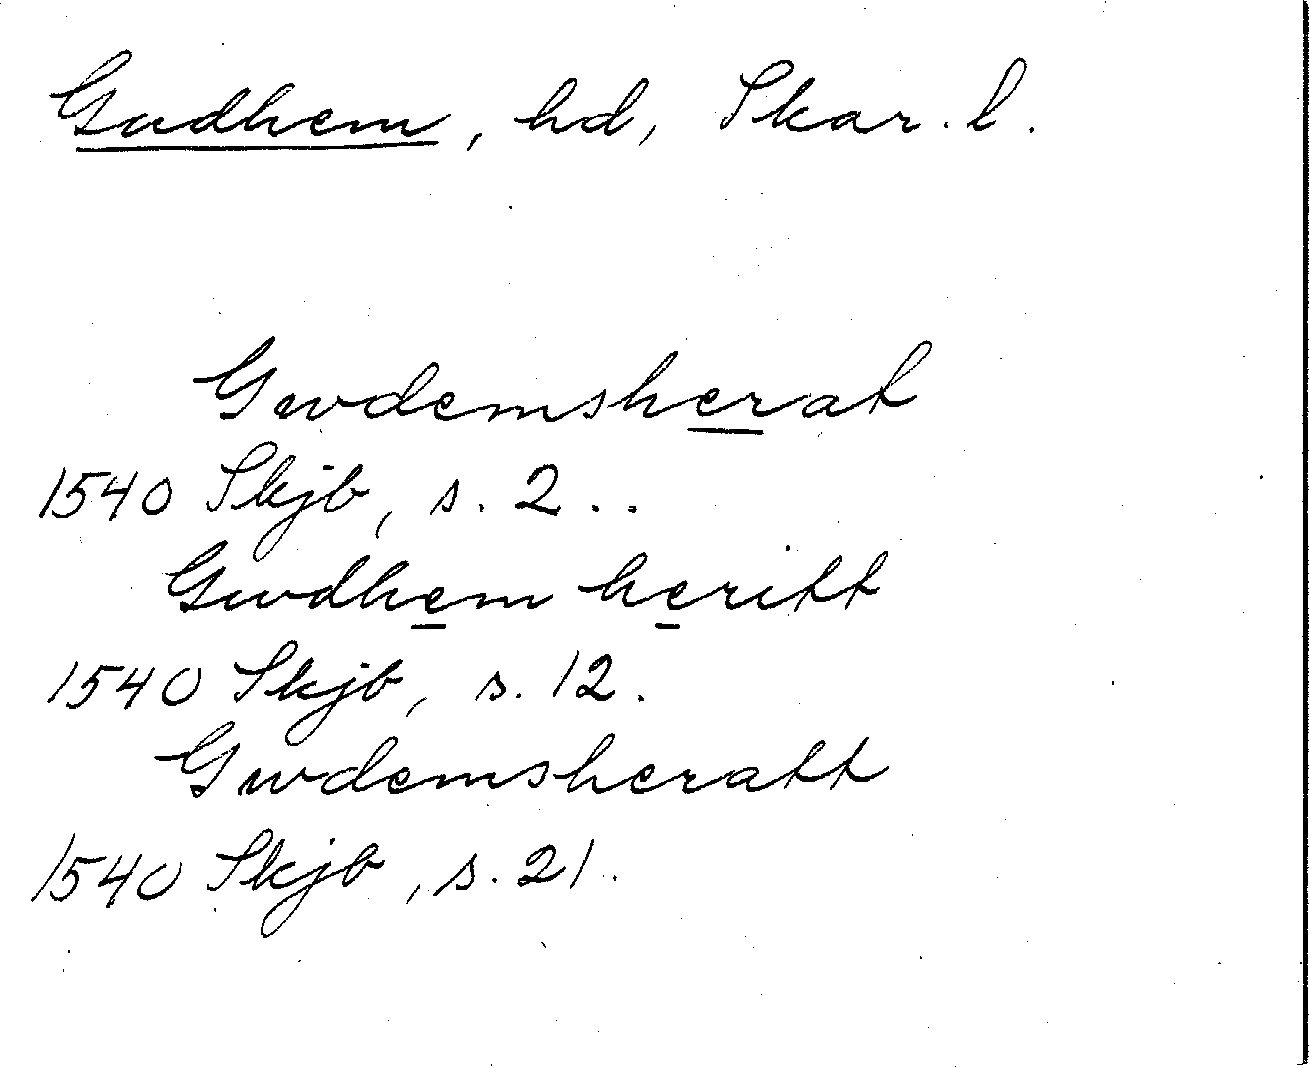 Gudhem, hd, Skar. l.
Gwdemsherat
1540 Skjb, s. 2..
Gwdhem heritt
1540 Skjb, s. 12.
Gwdemsheratt
1540 Skjb, s. 21.